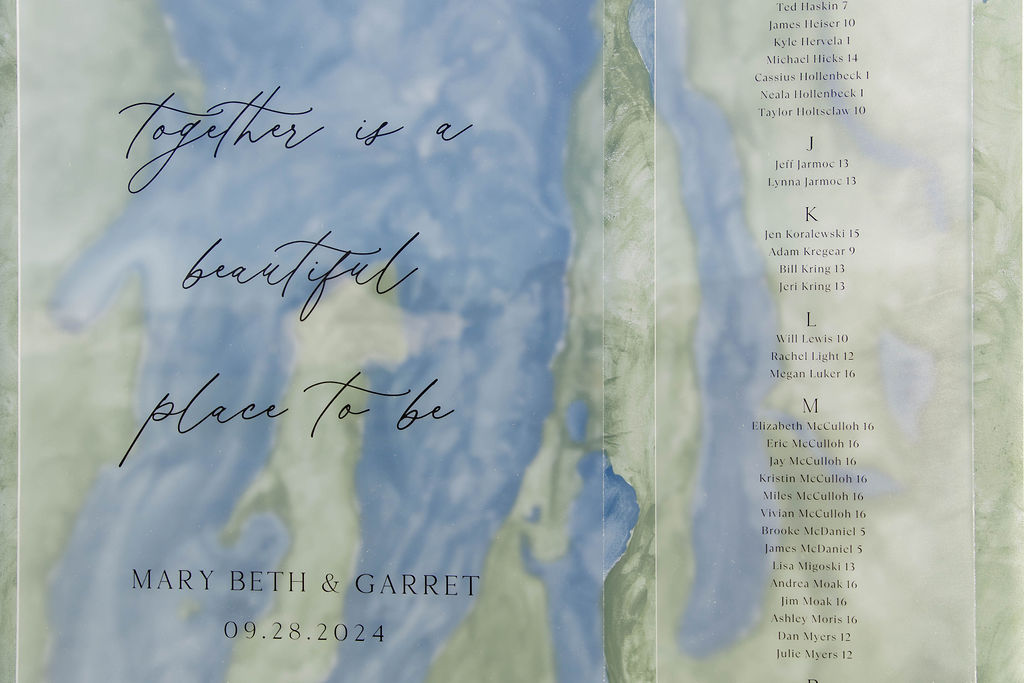 together is a
beautiful
place to be
MARY BETH & GARRET
09.28.2024
Ted Haskin 7
James Heiser 10
Kyle Hervela 1
Michael Hicks 14
Cassius Hollenbeck 1
Neala Hollenbeck 1
Taylor Holtsclaw 10
J
Jeff Jarmoc 13
Lynna Jarmoc 13
K
Jen Koralewski 15
Adam Kregear 9
Bill Kring 13
Jeri Kring 13
L
Will Lewis 10
Rachel Light 12
Megan Luker 16
M
Elizabeth McCulloh 16
Eric McCulloh 16
Jay McCulloh 16
Kristin McCulloh 16
Miles McCulloh 16
Vivian McCulloh 16
Brooke McDaniel 5
James McDaniel 5
Lisa Migoski 13
Andrea Moak 16
Jim Moak 16
Ashley Moris 16
Dan Myers 12
Julie Myers 12